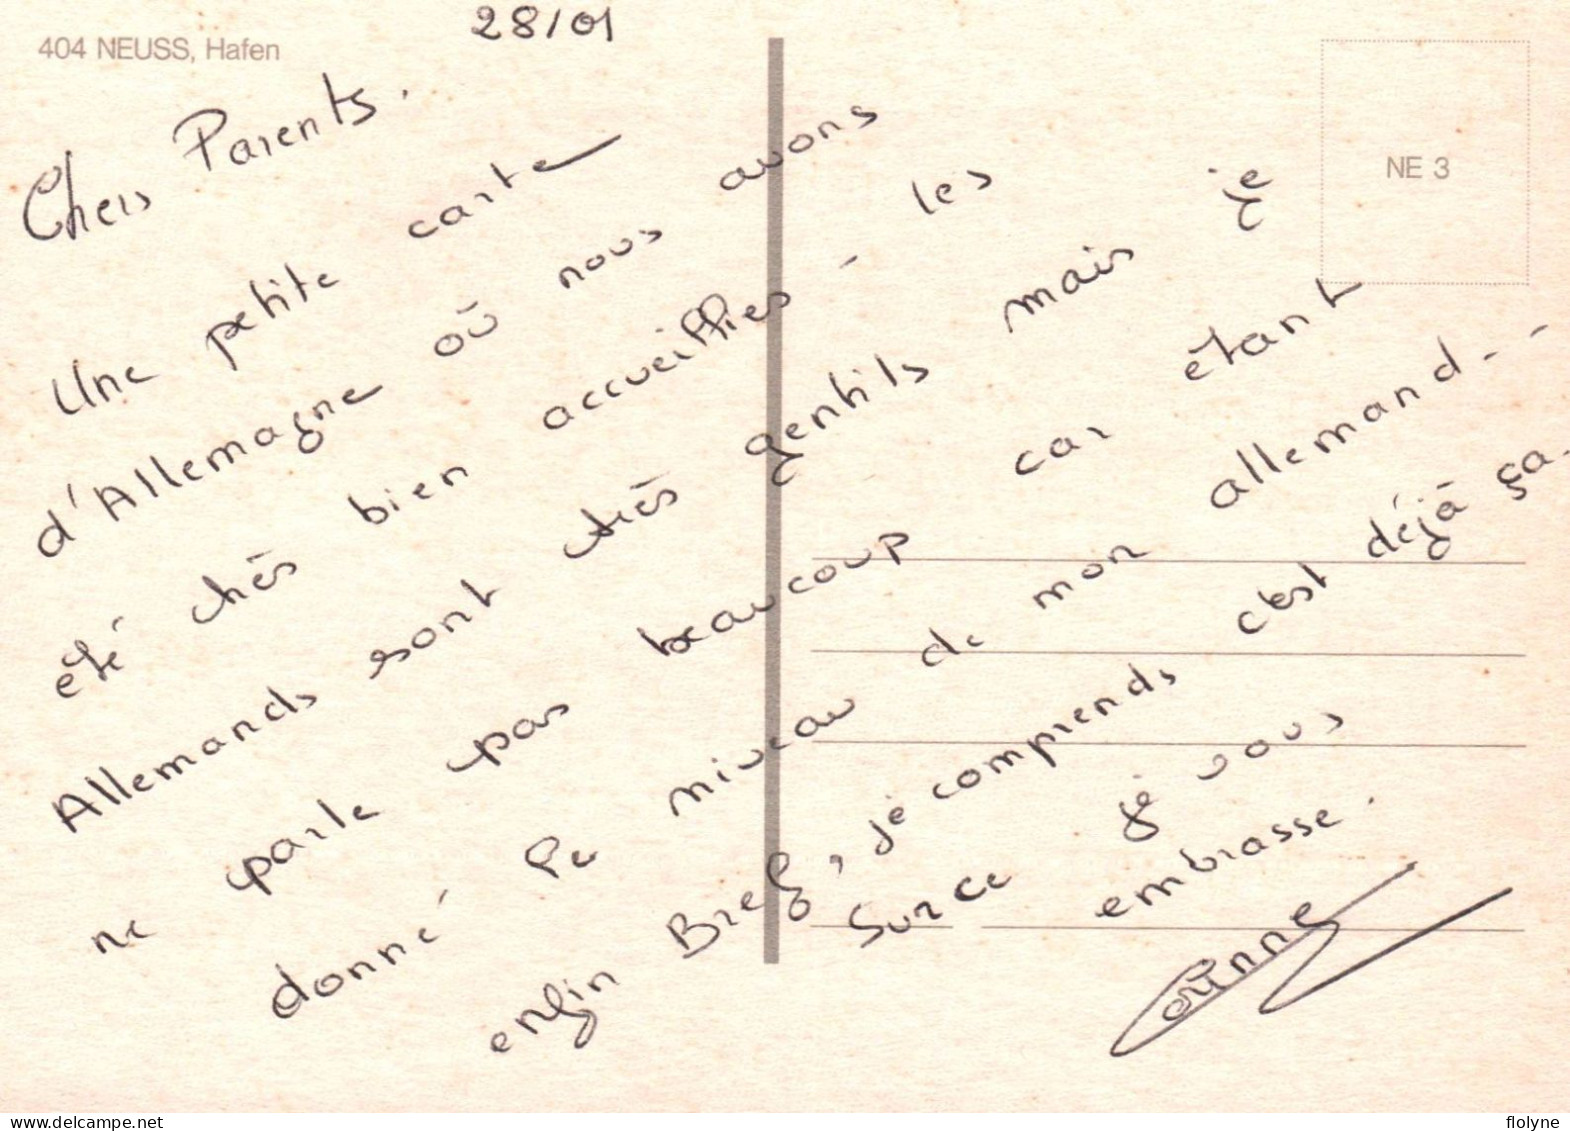 28/01
404 NEUSS, Hafen
NE 3
Chers Parents.
Une petite carte
d'Allemagne où nous avons
été très bien accueillies - les
Allemands sont très gentils mais je
ne parle pas beaucoup car étant
donné le niveau de mon allemand - -
enfin Bref, je comprends c'est déjà ça.
Sur ce je vous
embrasse.
Corinne
delcampe.net
flolyne